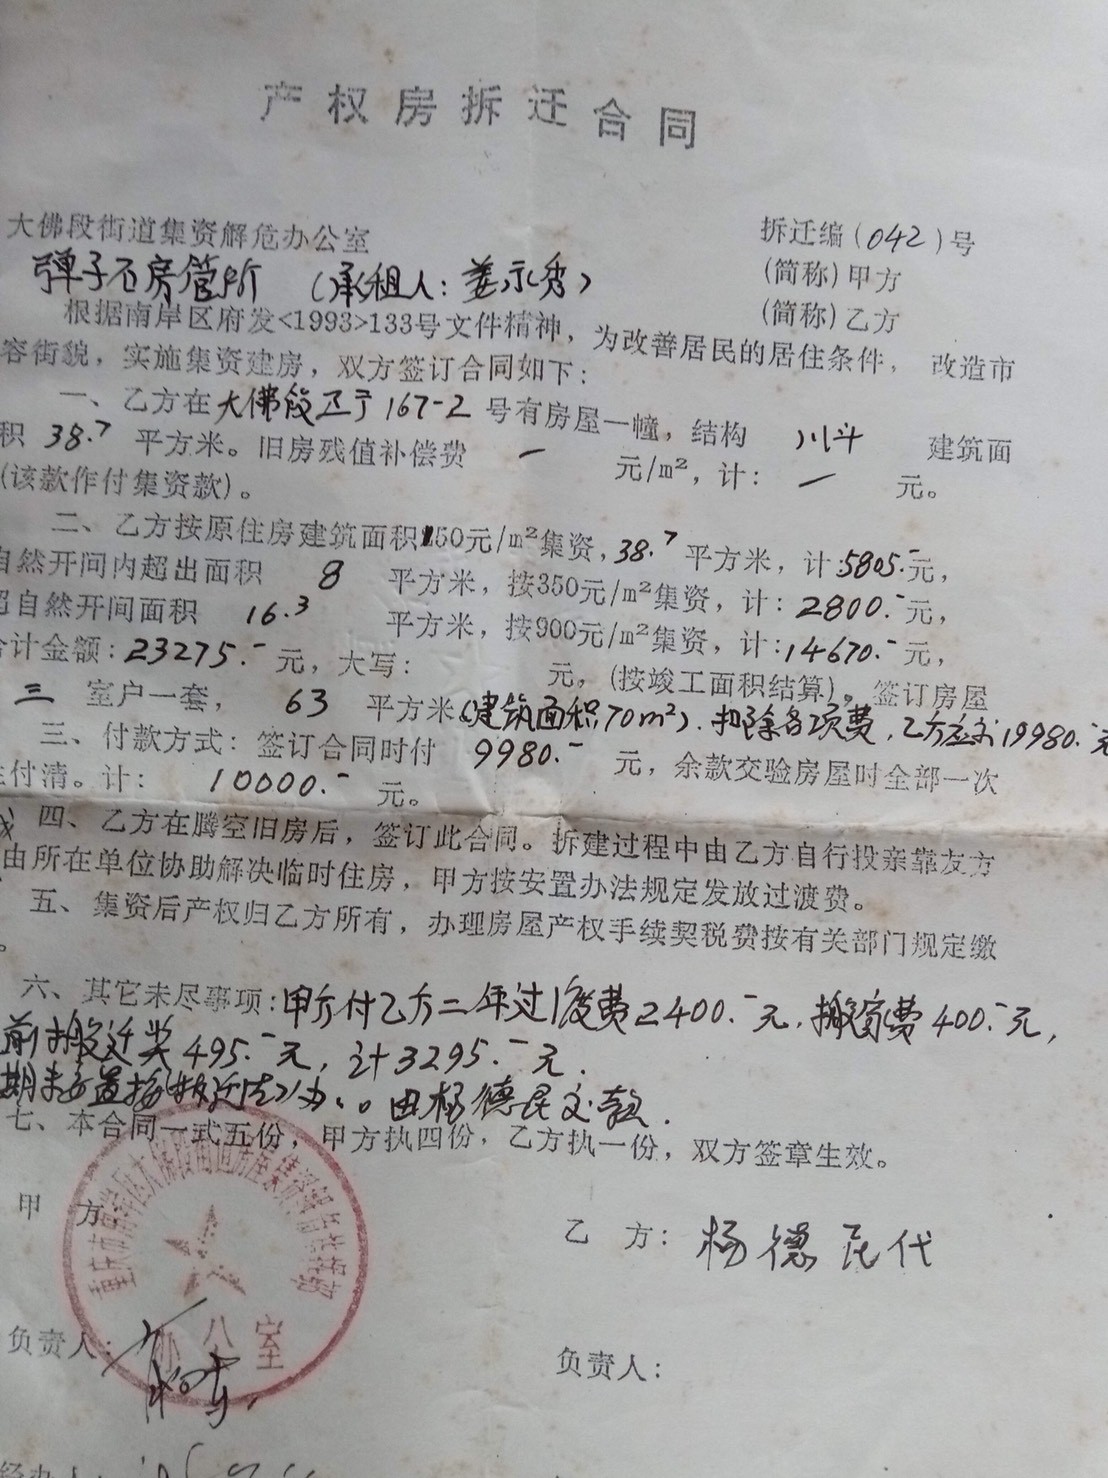 产权房拆迁合同
拆迁编(042)号
大佛段街道集资解危办公室 (简称)甲方
弹子石房管所 (承租人:姜永秀) (简称)乙方
根据南岸区府发<1993>133号文件精神，为改善居民的居住条件，改造市
容街貌，实施集资建房，双方签订合同如下：
一、乙方在大佛段正于167-2号有房屋一幢，结构 川斗 建筑面
积 38.7 平方米。旧房残值补偿费 一 元/m²，计： 一 元。
(该款作付集资款)。
二、乙方按原住房建筑面积150元/m²集资，38.7平方米，计:5805.-元，
自然开间内超出面积 8 平方米，按350元/m²集资，计：2800.-元，
超自然开间面积 16.3 平方米，按900元/m²集资，计:14670.-元，
合计金额:23275.-元，大写： 元，(按竣工面积结算)。签订房屋
三 室户一套， 63 平方米(建筑面积70m²)．扣除各项费，乙方应交19980.-元
三、付款方式：签订合同时付 9980.- 元，余款交验房屋时全部一次
性付清。计： 10000.- 元。
四、乙方在腾空旧房后，签订此合同。拆建过程中由乙方自行投亲靠友方
由所在单位协助解决临时住房，甲方按安置办法规定发放过渡费。
五、集资后产权归乙方所有，办理房屋产权手续契税费按有关部门规定缴
。
六、其它未尽事项：甲方付乙方二年过渡费2400.-元．搬家费400.-元，
前搬迁奖495.-元，计3295.-元．
期未安置按 办．。由杨德民交款．
七、本合同一式五份，甲方执四份，乙方执一份，双方签章生效。
甲 方 乙 方：杨德民代
办公室
负责人： 负责人：
经办人：